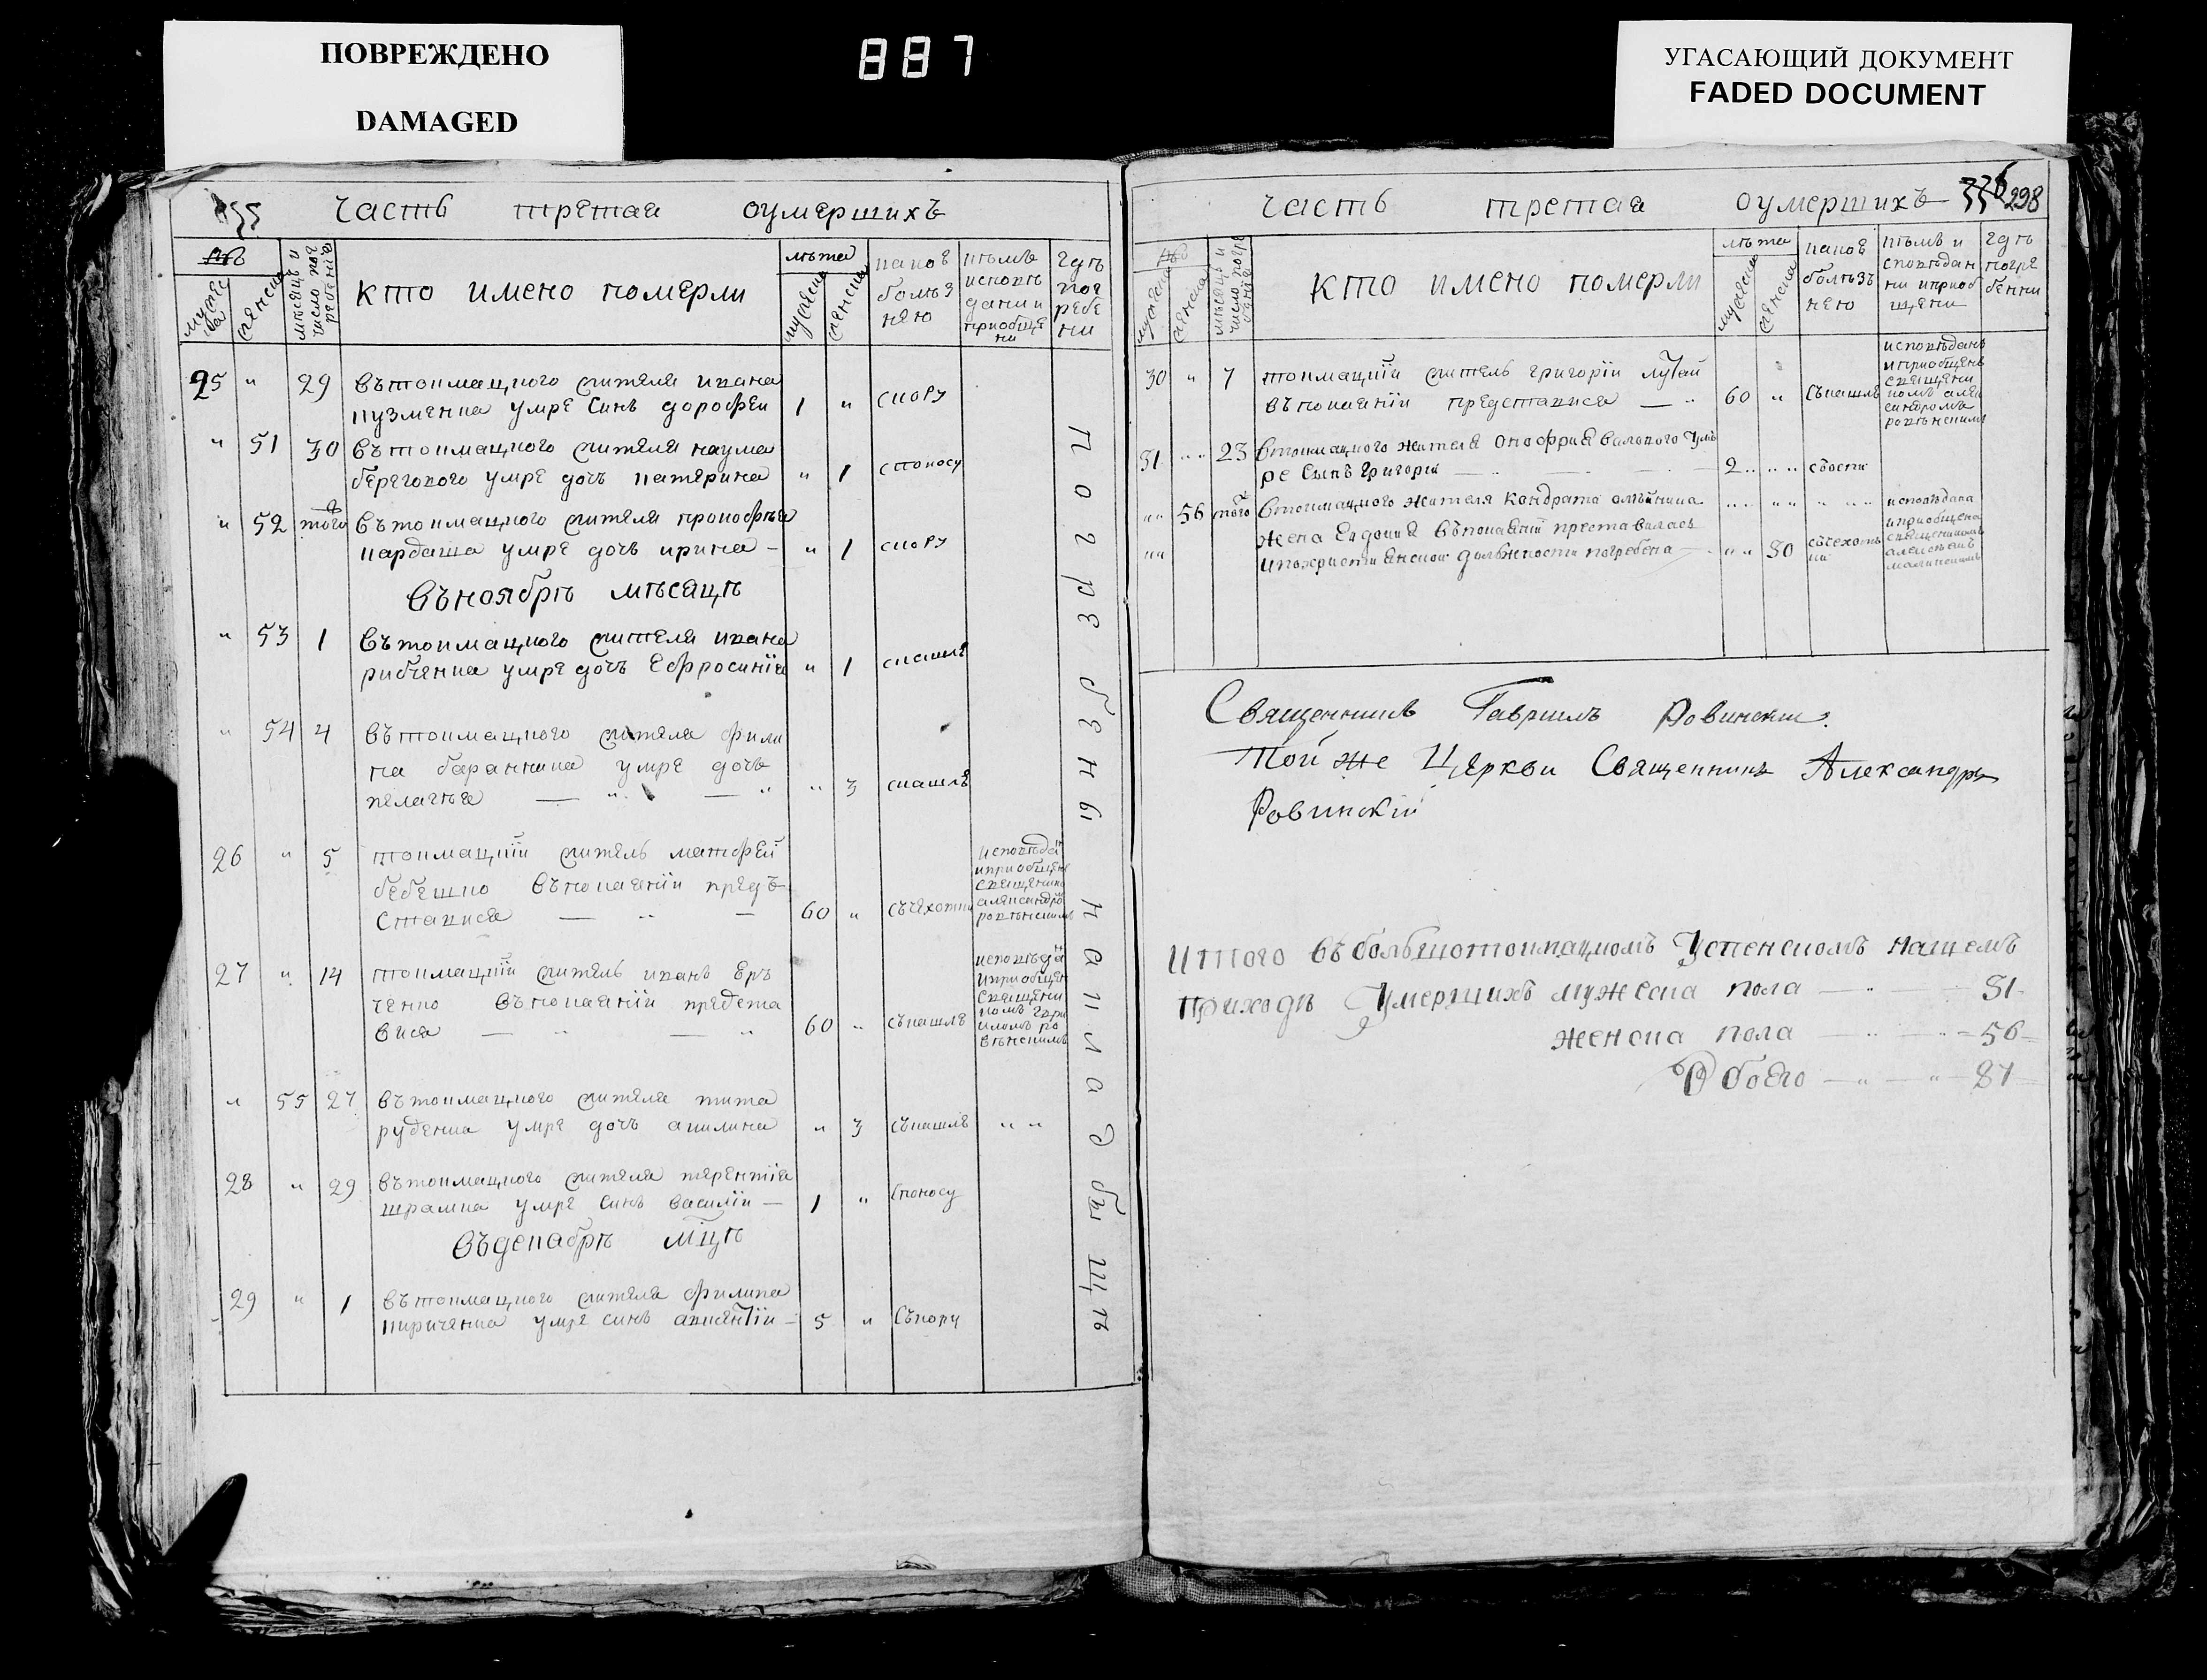 ПОВРЕЖДЕНО
DAMAGED
887
УГАСАЮЩИЙ ДОКУМЕНТ
FADED DOCUMENT
часть третая оумершихъ
№
мужеска
женска
мѣсяцъ и число погребенія
кто имено померли
лѣта
мужеска
женска
какое болѣзнею
кѣмъ исповѣдани и приобщени
гдѣ погребени
25 " 29 въ токмацкого жителя ивана
кузменка умре синъ дорофеи 1 " скору
" 51 30 въ токмацкого жителя наума
берегового умре дочъ катерина " 1 споносу
" 52 того въ токмацкого жителя прокофѣя
кардаша умре дочъ ирина " 1 скору
въ ноябрѣ мѣсяцѣ
" 53 1 въ токмацкого жителя ивана
рибченка умре дочъ Ефросинія " 1 скашле
" 54 4 въ токмацкого жителя фили
па баранника умре дочъ
пелагѣя " 3 скашле
26 " 5 токмацкій житель матфей
бебешко въ покаяніи предъ
ставися 60 " съчехотки
исповѣдан
иприобщен
священико
александро
ровѣнскимъ
27 " 14 токмацкій житель иванъ Ер
ченко въ покаяніи предста
вися 60 " съкашле
исповѣда
иприобщен
священи
комъ гаври
иломъ ро
вѣнскимъ
" 55 27 въ токмацкого жителя тита
руденка умре дочъ акилина " 3 съкашле " "
28 " 29 въ токмацкого жителя терентія
шрамка умре синъ василіи 1 " споносу
въ декабрѣ мцѣ
29 " 1 въ токмацкого жителя филипа
кириченка умре синъ авксентіи 5 " съкору
погребены на кладбыщѣ
часть третая оумершихъ 336 298
№
мужеска
женска
мѣсяцъ и число погребенія
кто имено померли
лѣта
мужеска
женска
какое болѣзнею
кѣмъ исповѣдани и приобщени
гдѣ погребени
30 " 7 токмацкій житель григоріи лутай
въ покаяніи представися 60 " съкашле
исповѣданъ
иприобщенъ
священи
комъ алек
сандромъ
ровѣнскимъ
31 " " 23 втокмацкого жителя онофрия
ре сынъ григори 2
" " 56 того втокмацкого жителя кондрата олѣйника
жена Евдокия въ покаяніи преставилась
ипохристиянской должности погребена " " 30 съчехотки
исповѣдана
иприобщена
священикомъ
алексѣемъ
Священникъ Гавриилъ Ровински.
Той же Церкви Священникъ Александръ
Ровинскій
Итого въ болшотокмацкомъ Успенскомъ нашемъ
приходѣ Умершихъ мужеска пола 31
женска пола 56
Обоего 87